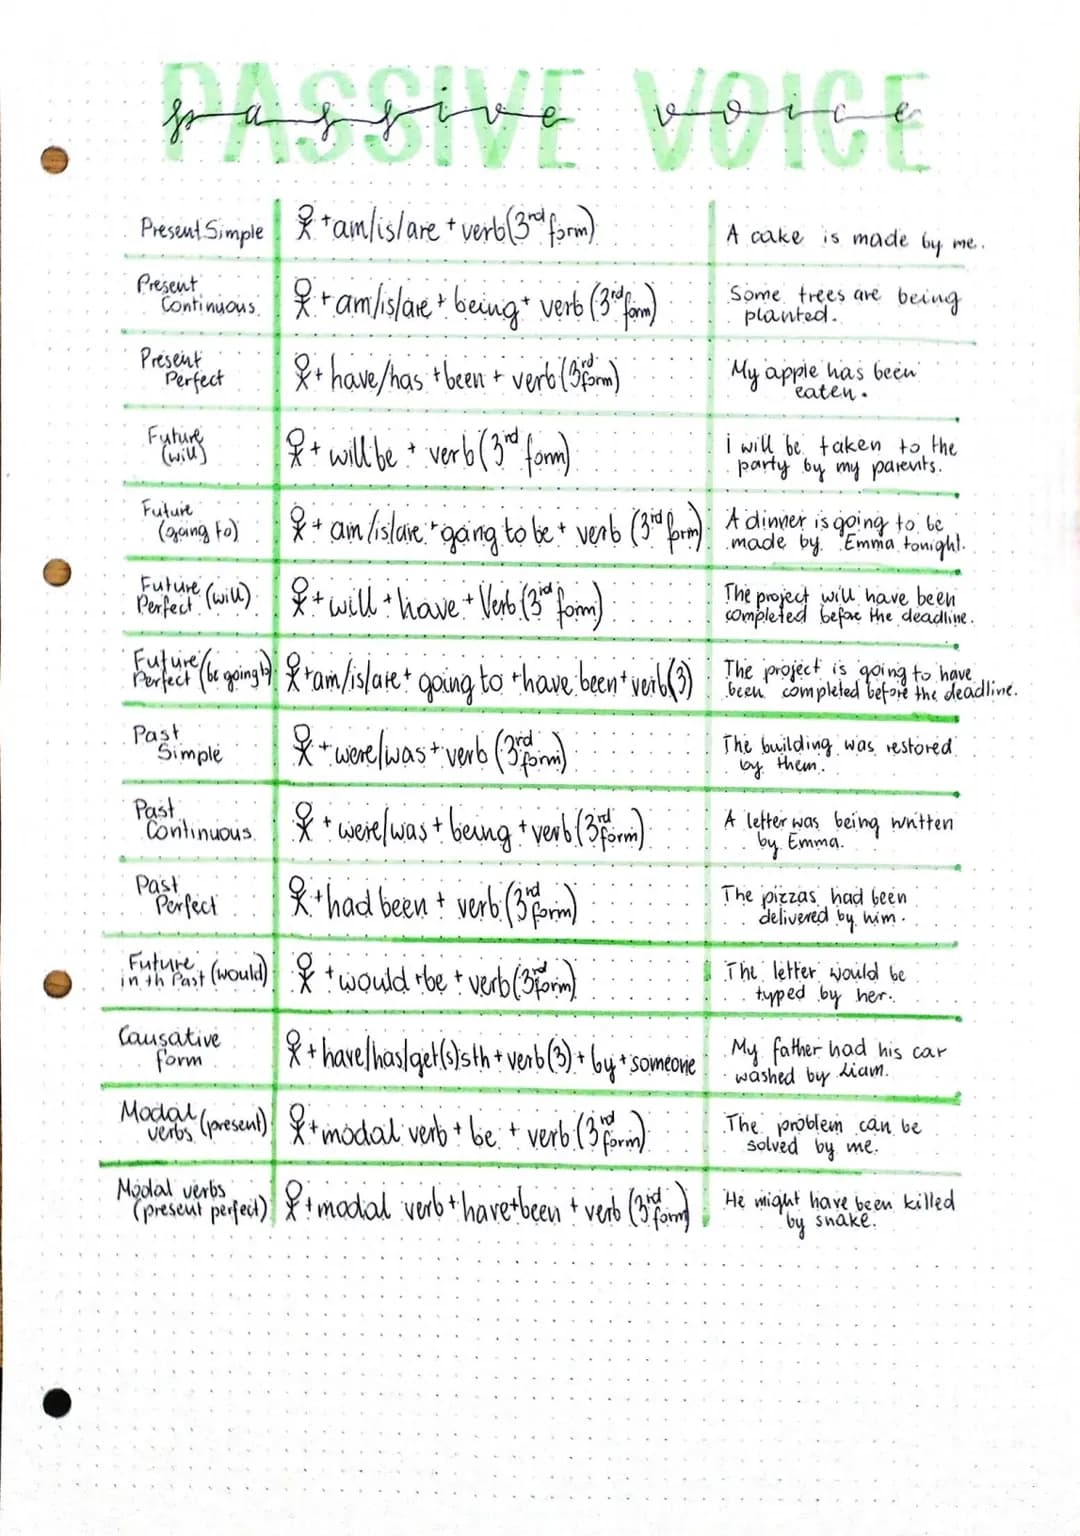 PASSIVE VOICE
passive voice
Present Simple
+am/is/are + verb (3rd form)
A cake is made by me.
Present
Continuous
+ am/is/are + being + verb (3rd form)
Some trees are being
planted.
Present
Perfect
+ have/has + been + verb (3rd form)
My apple has been
eaten.
Future
(will)
+ will be + verb (3rd form)
i will be taken to the
party by my parents.
Future
(going to)
+ am/is/are + going to be + verb (3rd form)
A dinner is going to be
made by Emma tonight.
Future
Perfect (will)
+ will + have + Verb (3rd form)
The project will have been
completed before the deadline.
Future
Perfect (be going to)
+am/is/are + going to + have been + verb (3)
The project is going to have
been completed before the deadline.
Past
Simple
+ were/was + verb (3rd form)
The building was restored
by them.
Past
Continuous
+ were/was + being + verb (3rd form)
A letter was being written
by Emma.
Past
Perfect
+had been + verb (3rd form)
The pizzas had been
delivered by him.
Future
in th Past (would)
+ would + be + verb (3rd form)
The letter would be
typed by her.
Causative
form
+ have/has/get(s) sth + verb (3) + by + someone
My father had his car
washed by Liam.
Modal
verbs (present)
+ modal verb + be + verb (3rd form)
The problem can be
solved by me.
Modal verbs
(present perfect)
+ modal verb + have + been + verb (3rd form)
He might have been killed
by snake.